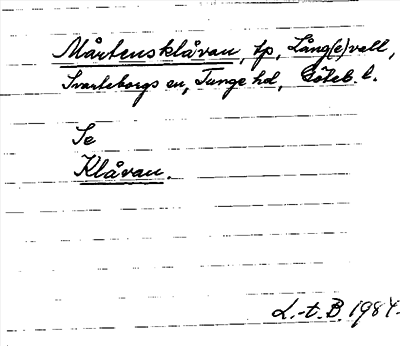 Mårtensklåvan, tp, Lång(e)vall,
Svarteborgs sn, Tunge hd, Göteb. l.
Se
Klåvan.
L.-t. B. 1984.